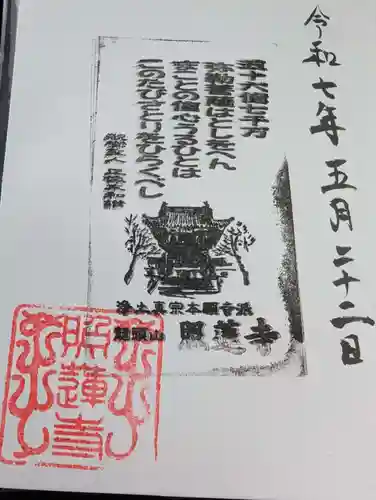 令和七年五月二十二日
五十六億七千万
弥勒菩薩はとしをへん
まことの信心うるひとは
このたびさとりをひらくべし
親鸞聖人 正像末和讃
浄土真宗本願寺派
照蓮寺
照蓮寺